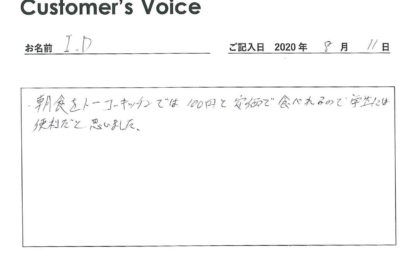 Customer's Voice
お名前 I.D ご記入日 2020 年 8 月 11 日
・朝食をトーコーキッチンでは 100円と安価で食べれるので学生には
便利だと思いました。